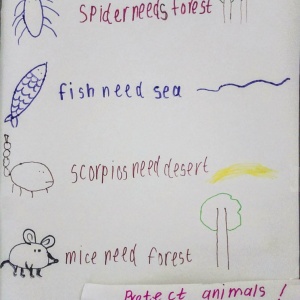 spider needs forest
fish need sea
scorpios need desert
mice need forest
Protect animals !